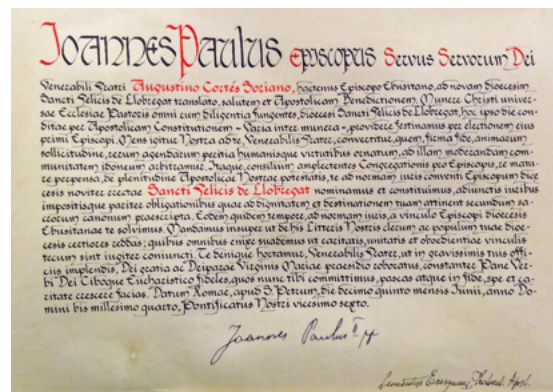 Joannes Paulus Episcopus Servus Servorum Dei
Venerabili Fratri Augustino Cortés Soriano, hactenus Episcopo Ebusitano, ad novam dioecesim
Sancti Felicis de Llobregat translato, salutem et Apostolicam Benedictionem. Munere Christi univer-
sae Ecclesiae Pastoris omni cum diligentia fungentes, dioecesi Sancti Felicis de Llobregat, hoc ipso die con-
ditae per Apostolicam Constitutionem - Varia inter munera -, providere festinamus per electionem eius
primi Episcopi. Mens igitur Nostra ad te, Venerabilis Frater, convertitur, quem, firma fide, animarum
sollicitudine, rerum agendarum peritia humanisque virtutibus ornatum, ad illam moderandam com-
munitatem idoneum arbitramur. Itaque, consilium amplectentes Congregationis pro Episcopis, re matu-
re perpensa, de plenitudine Apostolicae Nostrae potestatis, te ad normam iuris conventi Episcopum dioe-
cesis noviter erectae Sancti Felicis de Llobregat nominamus et constituimus, adiunctis iuribus
impositisque pariter obligationibus quae ad dignitatem et destinationem tuam attinent secundum sa-
crorum canonum praescripta. Eodem quidem tempore, ad normam iuris, a vinculo Episcopi dioecesis
Ebusitanae te solvimus. Mandamus insuper ut de his Litteris Nostris clerum ac populum tuae dioe-
cesis certiores reddas; quibus omnibus enixe suademus ut caritatis, unitatis et oboedientiae vinculis
tecum sint iugiter coniuncti. Te denique hortamur, Venerabilis Frater, ut in gravissimis tuis offi-
ciis implendis, Dei gratia ac Deiparae Virginis Mariae praesidio roboratus, constanter Pane Ver-
bi Dei Ciboque Eucharistico fideles, quos nunc tibi committimus, pascas atque in fide, spe et ca-
ritate crescere facias. Datum Romae, apud S. Petrum, die decimo quinto mensis Junii, anno Do-
mini bis millesimo quarto, Pontificatus Nostri vicesimo sexto.
Joannes Paulus II pp